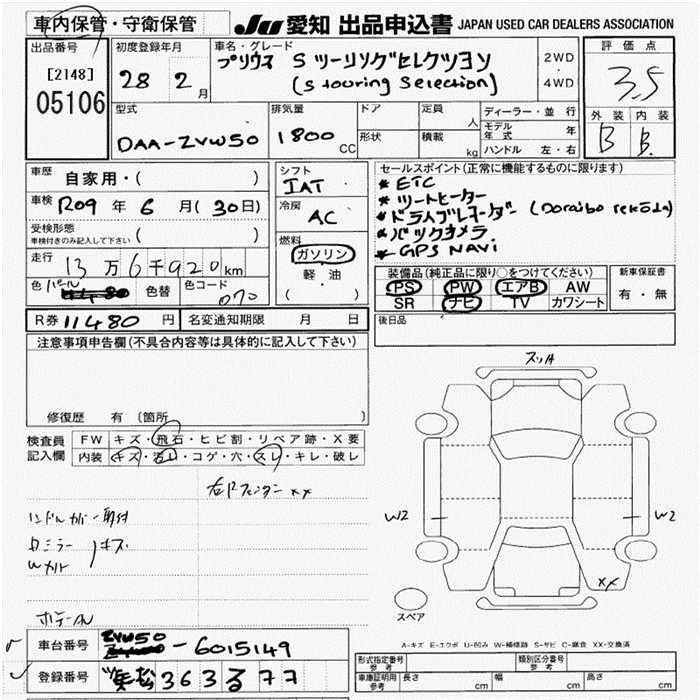 車内保管・守衛保管
JU 愛知 出品申込書 JAPAN USED CAR DEALERS ASSOCIATION
出品番号
[2148]
05106
初度登録年月
28 2月
車名・グレード
プリウス Sツーリングセレクション
(S touring Selection)
2WD
・
4WD
評価点
3.5
外装 内装
B B
型式
DAA-ZVW50
排気量
1800 CC
ドア
形状
定員 人
積載 kg
ディーラー・並行
モデル年式 年
ハンドル 左・右
車歴 自家用・( )
車検 R09年 6月(30日)
受検形態
車検付きのみ記入して下さい ( )
走行 13万6千920km
色 パール 色替 色コード 070
シフト
IAT
冷房
AC
燃料
ガソリン
軽・油
( )
セールスポイント(正常に機能するものに限ります)
* ETC
* シートヒーター
* ドライブレコーダー (Doraibo rekōda)
* バックカメラ
* GPS NAVi
装備品(純正品に限り○をつけてください)
PS PW エアB AW
SR ナビ TV カワシート
新車保証書
有・無
R券 11480円 名変通知期限 月 日
後日品
注意事項申告欄(不具合内容等は具体的に記入して下さい)
修復歴 有 (箇所 )
検査員記入欄
FW キズ・飛石・ヒビ割・リペア跡・X要
内装 キズ・汚レ・コゲ・穴・スレ・キレ・破レ
右Fフェンダー XX
ハンドルカバー取付
キズ
スリA
W2
W2
XX
スペア
A-キズ E-エクボ U-凹み W-補修跡 S-サビ C-腐食 XX-交換済
車台番号 ZVW50-6015149
登録番号 浜松363る77
形式指定番号 参考
類別区分番号 参考
車庫証明用 参考 長さ cm 幅 cm 高さ cm